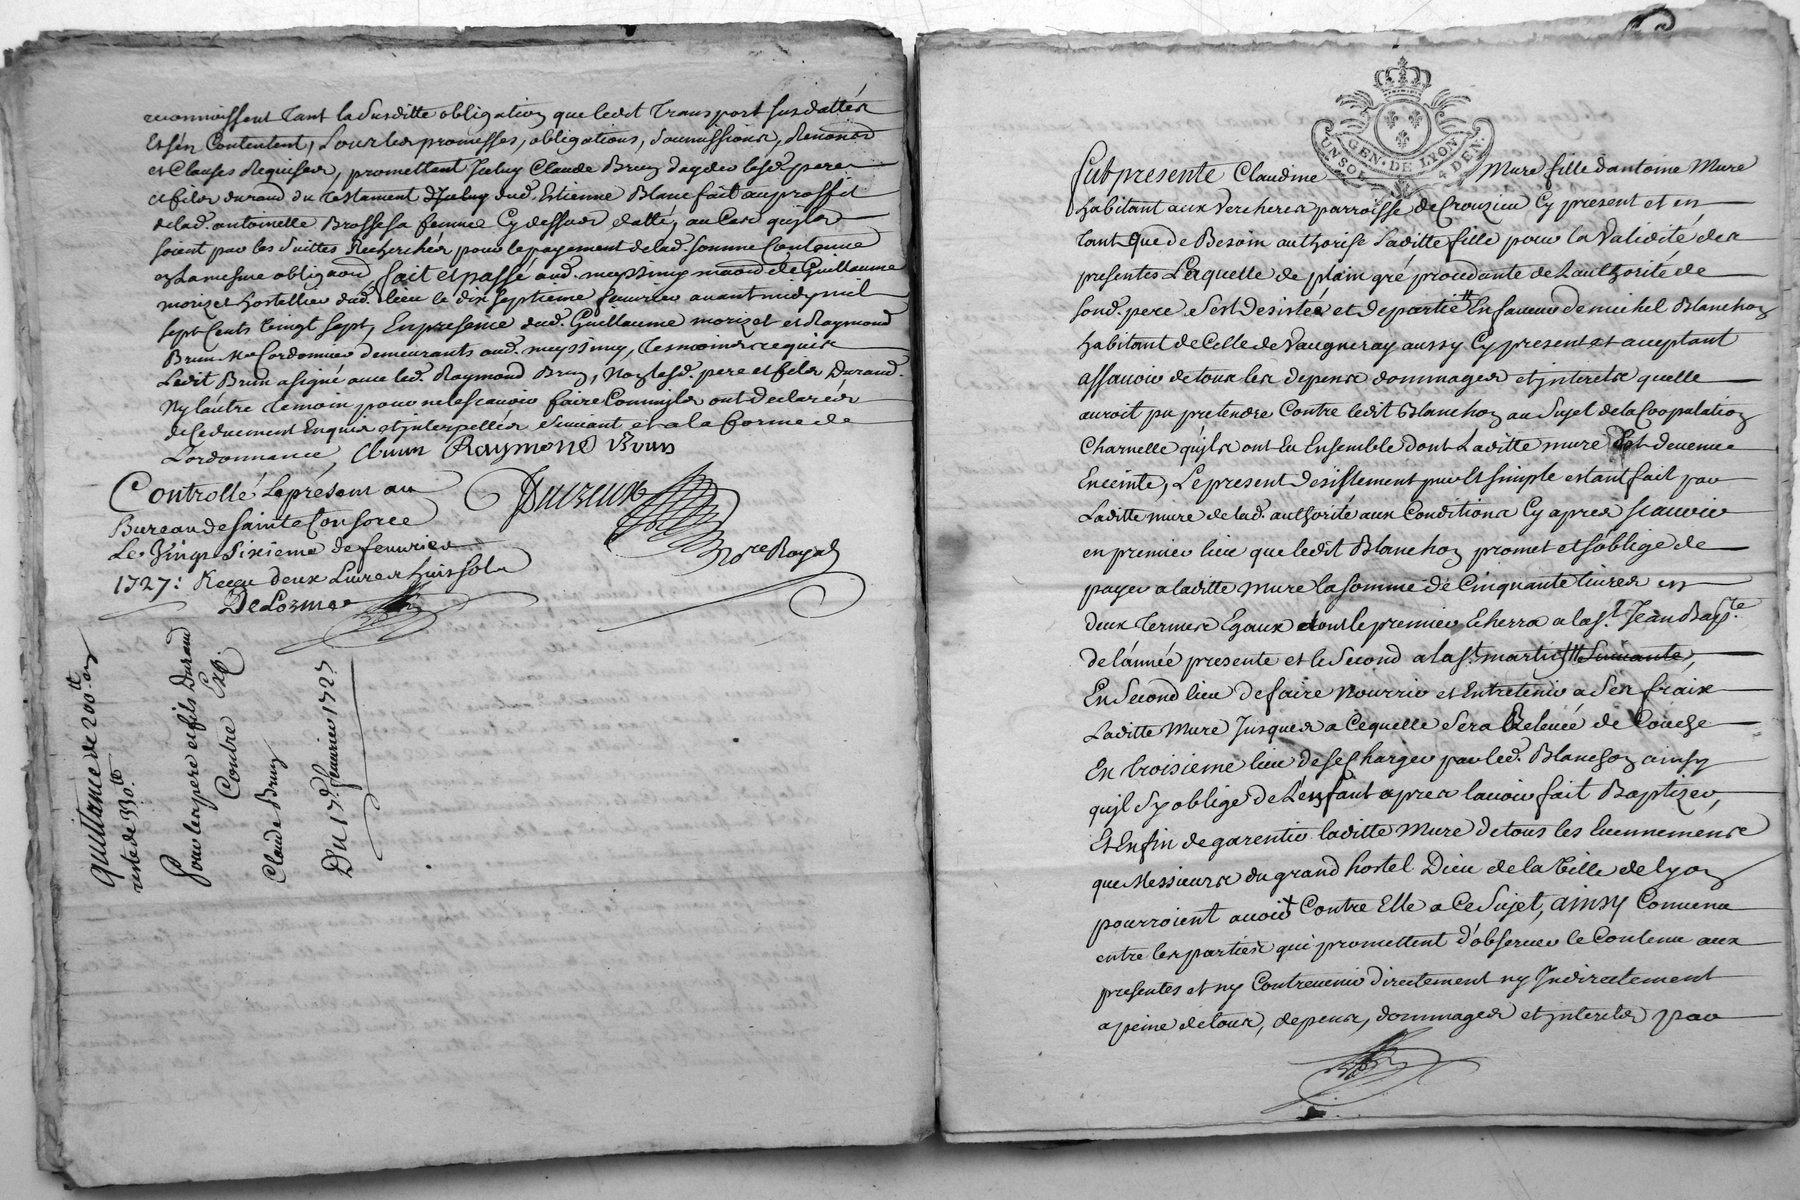 reconnoissent tant la Susditte obligation que ledit transport sus dattés
Et s'en Contentent, Sous les promesses, obligations, Soumissions, Renons
et Clauses Requises, promettant Iceluy Claude Brun d'ayder lesd. pere
et fils durand du testament d'Iceluy sud. Estienne Blanc fait au proffit
de lad. antoinette Brosse sa femme Cy dessus datté, au Cas quils
soient par les Suittes Recherches pour le payement de lad. somme Contenue
en la mesme obligaon, fait et passé aud. meyssimy maison de Guillaume
morizet hostellier dud. lieu le dix septieme feuvrier avant midy mil
sept Cents vingt sept, En presence dud. Guillaume morizet et Raymond
Brun Me Cordonnier demeurants aud. meyssimy, tesmoins requis
Ledit Brun a signé avec led. Raymond Brun, Non lesd. pere et fils Durand
Ny l'autre temoin pour ne le scavoir faire Comm'ils ont declarés
de Ce duement Enquis et interpellés Suivant et a la forme de
L'ordonnance, CBrun Raymond Brun
Controllé le present au
Bureau de Sainte Consorce
Le Vingt Sixieme de feuvrier
1727: Receu deux Livres huit sols
DeLorme
Nore Royal
quittance de 200tt
reste de 330tt
Pour les pere et fils Durand
Contre Exp.
Claude Brun
Du 17e feuvrier 1727
GEN. DE LYON
UN SOL 4 DEN.
fut presente Claudine Mure fille d'antoine Mure
habitant aux Vercheres parroisse de Crouzieu Cy present et en
tant que de Besoin authorise Laditte fille pour la Validité des
presentes Laquelle de plain gré procedante de L'authorité de
sond. pere s'est desistée et departie En faveur de michel Blanchon
habitant de Celle de Vaugneray aussy Cy present et acceptant
assavoir de tous les depens dommages et interets quelle
auroit pu pretendre Contre ledit Blanchon au Sujet de la Coopulation
Charnelle quils ont Eu Ensemble dont Laditte mure Est devenue
Enceinte, Le present desistement pur Et simple estant fait par
Laditte mure de lad. authorité aux Conditions Cy apres scavoir
en premier lieu que ledit Blanchon promet et s'oblige de
payer a laditte mure la somme de Cinquante livres en
deux termes Egaux dont le premier Echerra a la st. Jean Bapte.
de l'année presente et le Second a la st. martin Suivante,
En Second lieu de faire nourrir et Entretenir a Ses fraix
Laditte Mure Jusques a Ce quelle Sera Relevée de Couche
En troisieme lieu de se Charger par led. Blanchon ainsy
quil s'y oblige de L'enfant apres l'avoir fait Baptizer,
Et Enfin de garentir laditte Mure de tous les Evennements
que Messieurs du grand hostel Dieu de la Ville de Lyon
pourroient avoir Contre Elle a Ce Sujet, ainsy Convenu
entre les parties qui promettent d'observer le Contenu aux
presentes et ny Contrevenir directement ny Indirectement
a peine de tous, depens, dommages et interets par